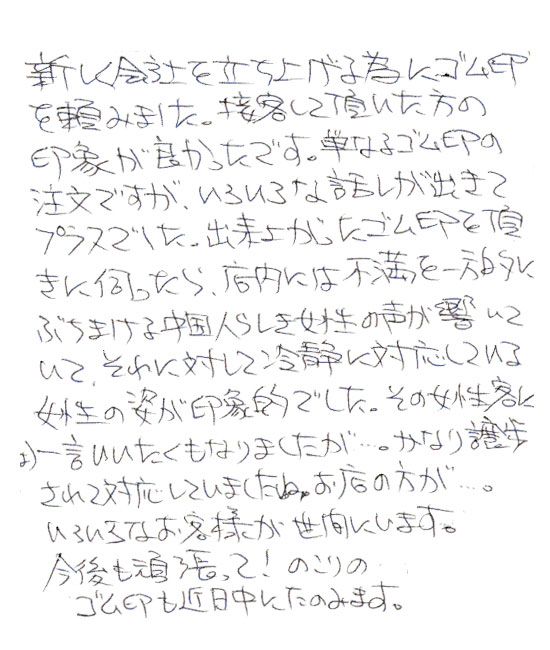 新しく会社を立ち上げる為にゴム印
を頼みました。接客して頂いた方の
印象が良かったです。単なるゴム印の
注文ですが、いろいろな話しが出きて
プラスでした。出来上がったゴム印を頂
きに伺ったら、店内には不満を一方的に
ぶちまける中国人らしき女性の声が響いて
いて、それに対して冷静に対応している
女性の姿が印象的でした。その女性客に
よ)一言いいたくもなりましたが…。かなり譲歩
されて対応していましたね。お店の方が…。
いろいろなお客様が世間にいます。
今後も頑張って!のこりの
ゴム印も近日中にたのみます。